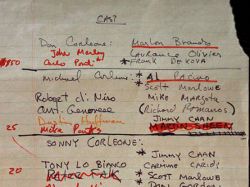 CAST
Don Corleone: Marlon Brando
John Marley * Laurence Olivier
Carlo Ponti * FRANK DE KOVA
Michael Corleone: * AL PACINO
* Scott Marlowe
Robert di Niro MIKE MARGOTTA
Art Genovese (Richard Romanus)
Dustin Hoffman JIMMY CAAN
MARTIN SHEEN
25
SONNY CORLEONE: * JIMMY CAAN
TONY LO BIANCO CARMINE CARIDI
20 * SCOTT MARLOWE
DON GORDON